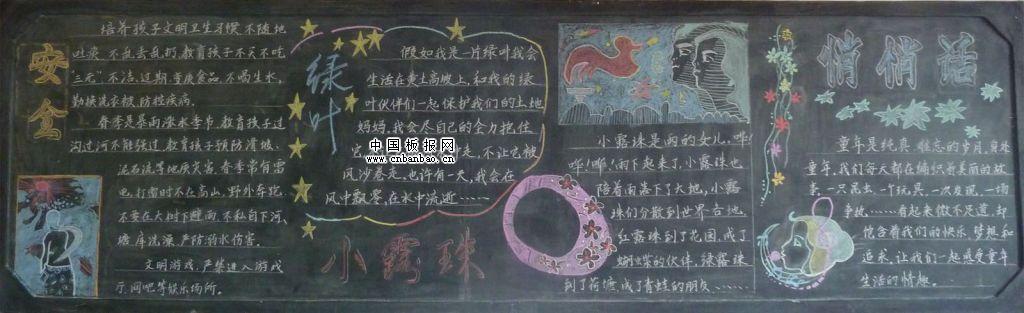 安全
培养孩子文明卫生习惯不随地
吐痰,不乱丢乱扔,教育孩子不买不吃
"三无"不洁,过期,变质食品,不喝生水,
勤换洗衣被,防控疾病。
春季是暴雨涨水季节,教育孩子过
沟过河不能强过,教育孩子预防滑坡、
泥石流等地质灾害,春季常有雷
电,打雷时不在高山,野外车跑,
不要在大树下避雨,不私自下河、
塘库洗澡,严防溺水伤害。
文明游戏,严禁进入游戏
厅,网吧等娱乐场所。
绿叶
假如我是一片绿叶我会
生活在黄土高坡上,和我的绿
叶伙伴们一起保护我们的土地
妈妈,我会尽自己的全力抱住
它 走,不让它被
风沙卷走,也许有一天,我会在
风中飘零,在水中流逝……
中国板报网
www.cnbanbao.cn
小露珠
小露珠是雨的女儿,哗!
哗!哗!雨下起来了,小露珠也
陪着雨落下了大地,小露
珠们分散到世界各地。
红露珠到了花园,成了
蝴蝶的伙伴,绿露珠
到了荷塘,成了青蛙的朋友……
悄悄话
童年是纯真、难忘的岁月,身处
童年,我们每天都在编织奇美丽的故
事,一只昆虫、一个玩具、一次发现,一场
争执,……看起来微不足道,却
包含着我们的快乐、梦想和
追求,让我们一起感受童年
生活的情趣。